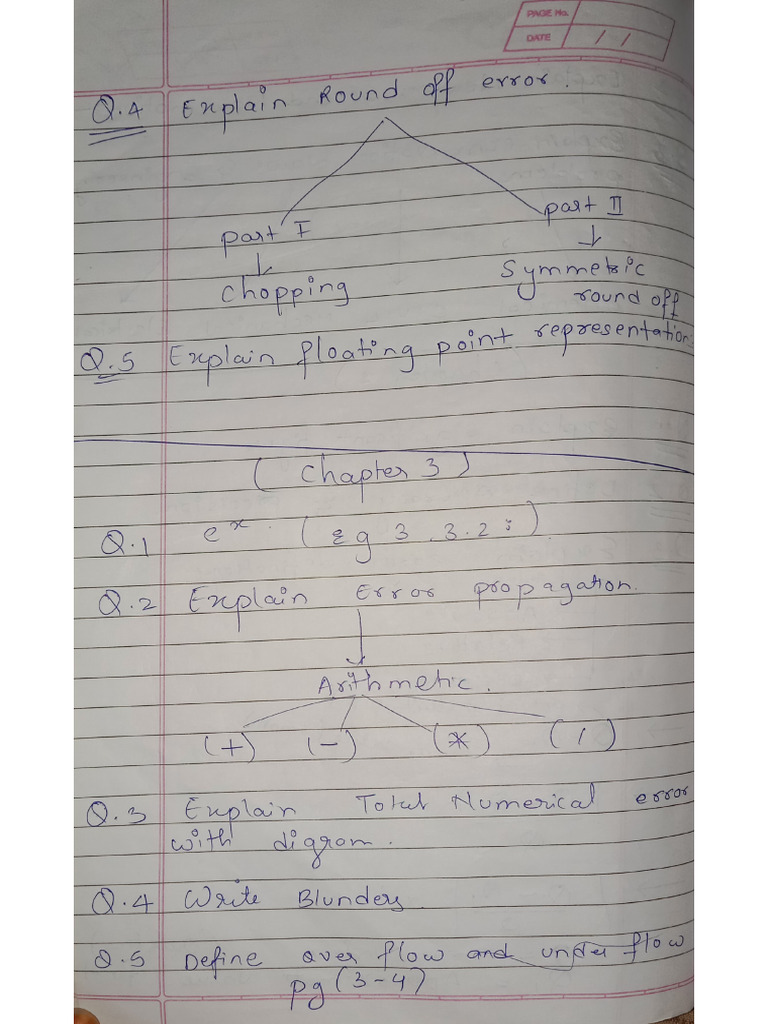 PAGE No.
DATE / /
Q.4 Explain Round off error.
part I part II
Chopping Symmetric
round off
Q.5 Explain floating point representation
( Chapter 3 )
Q.1 e^x. ( Eg 3.3.2 : ).
Q.2 Explain Error propagation.
Arithmetic.
(+) (-) (*) (/)
Q.3 Explain Total Numerical error
with digram.
Q.4 Write Blunders
Q.5 Define over flow and under flow
pg (3-4)